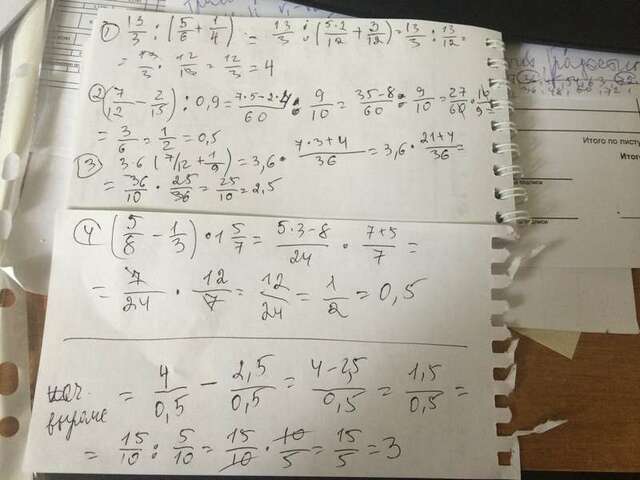 1) 13/3 : (5/6 + 1/4) = 13/3 : (5·2/12 + 3/12) = 13/3 : 13/12 =
= 13/3 · 12/13 = 12/3 = 4
2) (7/12 - 2/15) : 0,9 = 7·5-2·4/60 : 9/10 = 35-8/60 : 9/10 = 27/60 · 10/9 =
= 3/6 = 1/2 = 0,5
3) 3·6 (7/12 + 1/9) = 3,6 · 7·3+4/36 = 3,6 · 21+4/36 =
= 36/10 · 25/36 = 25/10 = 2,5
4) (5/8 - 1/3) · 1 5/7 = 5·3-8/24 · 7+5/7 =
= 7/24 · 12/7 = 12/24 = 1/2 = 0,5
= 4/0,5 - 2,5/0,5 = 4-2,5/0,5 = 1,5/0,5 =
= 15/10 : 5/10 = 15/10 · 10/5 = 15/5 = 3
Итого по листу
Итого